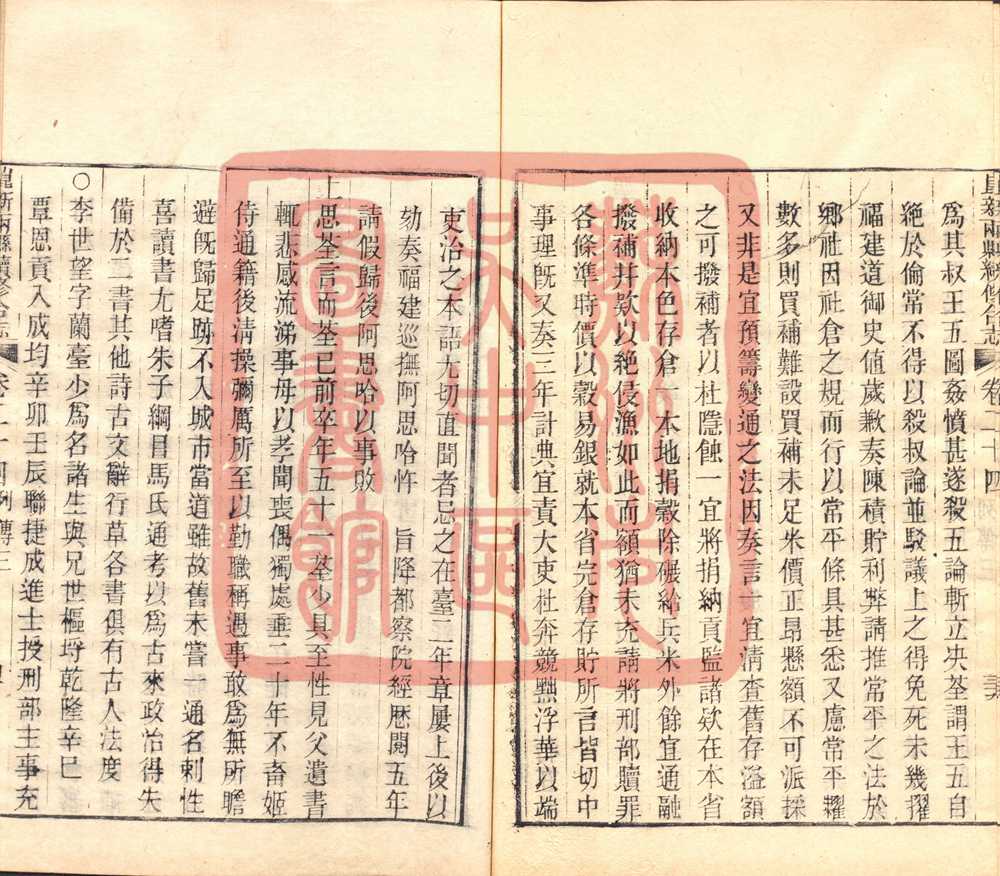 崑新兩縣續修合志 卷二十四
爲其叔王五圖姦憤甚遂殺五論斬立决荃謂王五自
絶於倫常不得以殺叔論並駁議上之得免死未幾擢
福建道御史值歲歉奏陳積貯利弊請推常平之法於
鄉社因社倉之規而行以常平條具甚悉又慮常平糶
數多則買補難設買補未足米價正昂懸額不可派採
又非是宜預籌變通之法因奏言一宜清查舊存溢額
之可撥補者以杜隱蝕一宜將捐納貢監諸欵在本省
收納本色存倉一本地捐穀除碾給兵米外餘宜通融
撥補井欵以絶侵漁如此而額猶未充請將刑部贖罪
各條準時價以穀易銀就本省完倉存貯所言皆切中
事理旣又奏三年計典宜責大吏杜奔競黜浮華以端
吏治之本語尤切直聞者忌之在臺二年章屢上後以
劾奏福建巡撫阿思哈忤 旨降都察院經歷閱五年
請假歸後阿思哈以事敗
上思荃言而荃已前卒年五十一荃少具至性見父遺書
輒悲感流涕事母以孝聞喪偶獨處垂二十年不畜姬
侍通籍後清操彌厲所至以勤職稱遇事敢爲無所瞻
避旣歸足跡不入城市當道雖故舊未嘗一通名剌性
喜讀書尤嗜朱子綱目馬氏通考以爲古來政治得失
備於二書其他詩古文辭行草各書俱有古人法度
○李世望字蘭臺少爲名諸生與兄世樞埒乾隆辛巳
覃恩貢入成均辛卯壬辰聯捷成進士授刑部主事充
崑新兩縣續修合志 卷二十四 列傳三
蘇州市吳中區圖書館